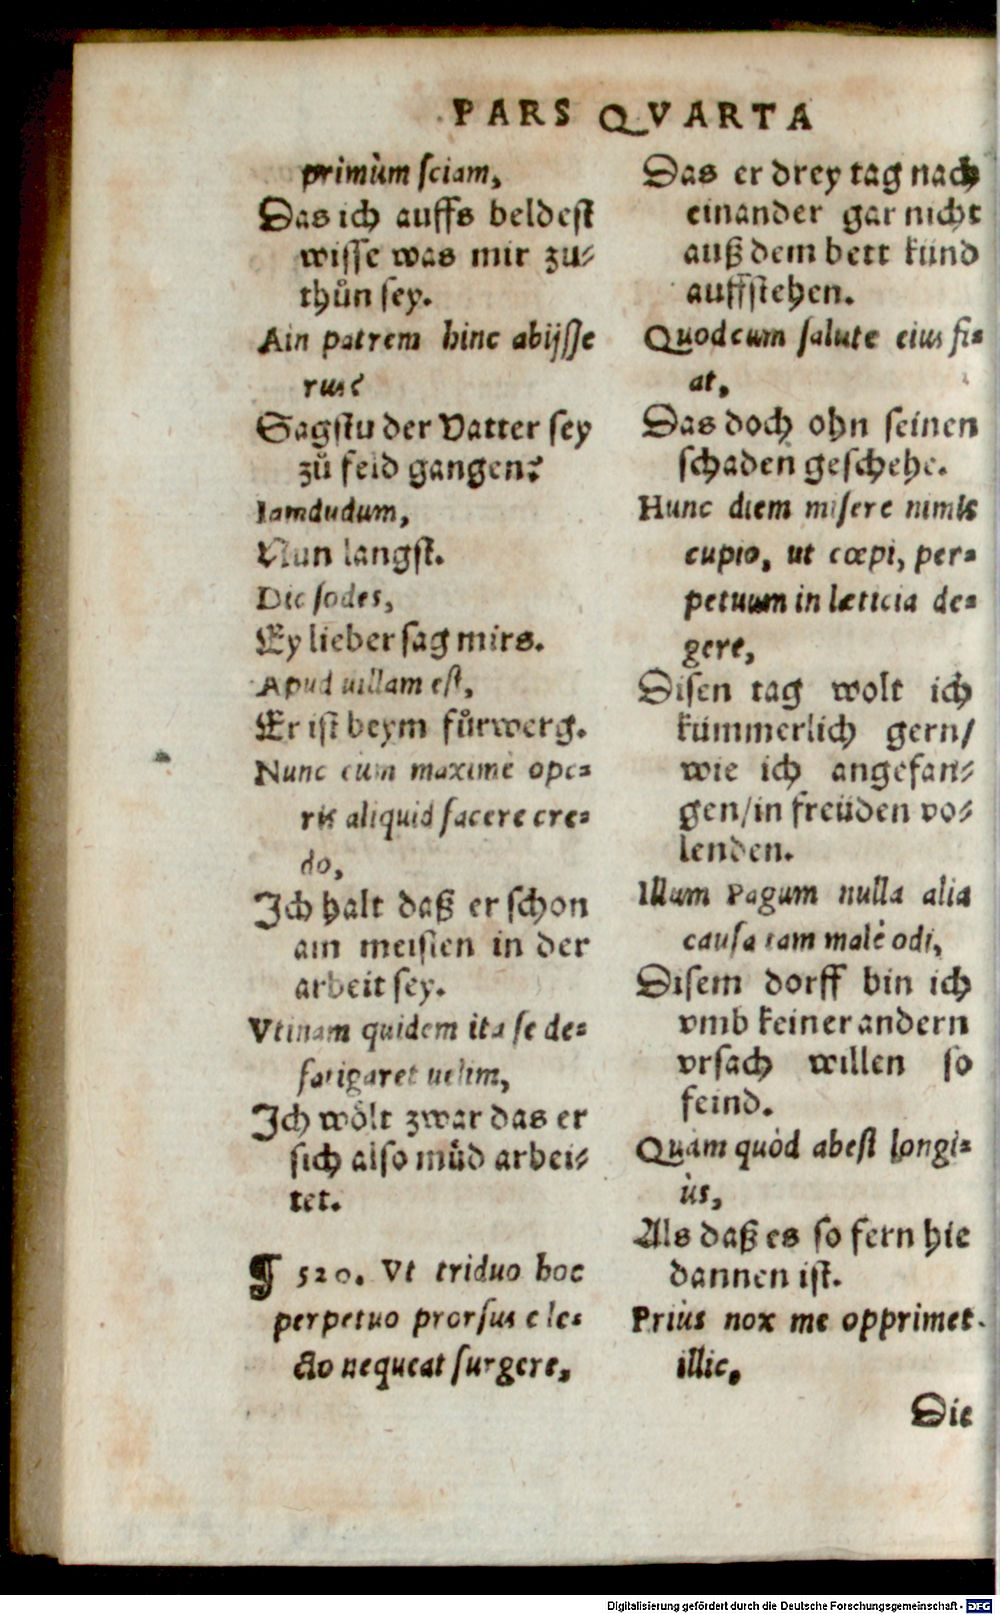 PARS QVARTA
primùm ſciam,
Das ich auffs beldeſt
wiſſe was mir zu⸗
thůn ſey.
Ain patrem hinc abijſſe
rus?
Sagſtu der Vatter ſey
zů feld gangen?
Iamdudum,
Nun langſt.
Dic ſodes,
Ey lieber ſag mirs.
Apud uillam eſt,
Er iſt beym fürwerg.
Nunc cùm maximè ope⸗
ris aliquid facere cre⸗
do,
Ich halt daß er ſchon
am meiſten in der
arbeit ſey.
Vtinam quidem ita ſe de⸗
fatigaret uelim,
Ich wölt zwar das er
ſich alſo müd arbei⸗
tet.
¶ 520. Vt triduo hoc
perpetuo prorſus e le⸗
cto nequeat ſurgere,
Das er drey tag nach
einander gar nicht
auß dem bett künd
auffſtehen.
Quod cum ſalute eius fi⸗
at,
Das doch ohn ſeinen
ſchaden geſchehe.
Hunc diem miſere nimis
cupio, ut cœpi, per⸗
petuum in læticia de⸗
gere,
Diſen tag wolt ich
kümmerlich gern/
wie ich angefan⸗
gen/in freüden vo⸗
lenden.
Illum Pagum nulla alia
cauſa tam malè odi,
Diſem dorff bin ich
vmb keiner andern
vrſach willen ſo
feind.
Quàm quòd abeſt longi⸗
ùs,
Als daß es ſo fern hie
dannen iſt.
Priùs nox me opprimet
illic,
Die
Digitalisierung gefördert durch die Deutsche Forschungsgemeinschaft - DFG